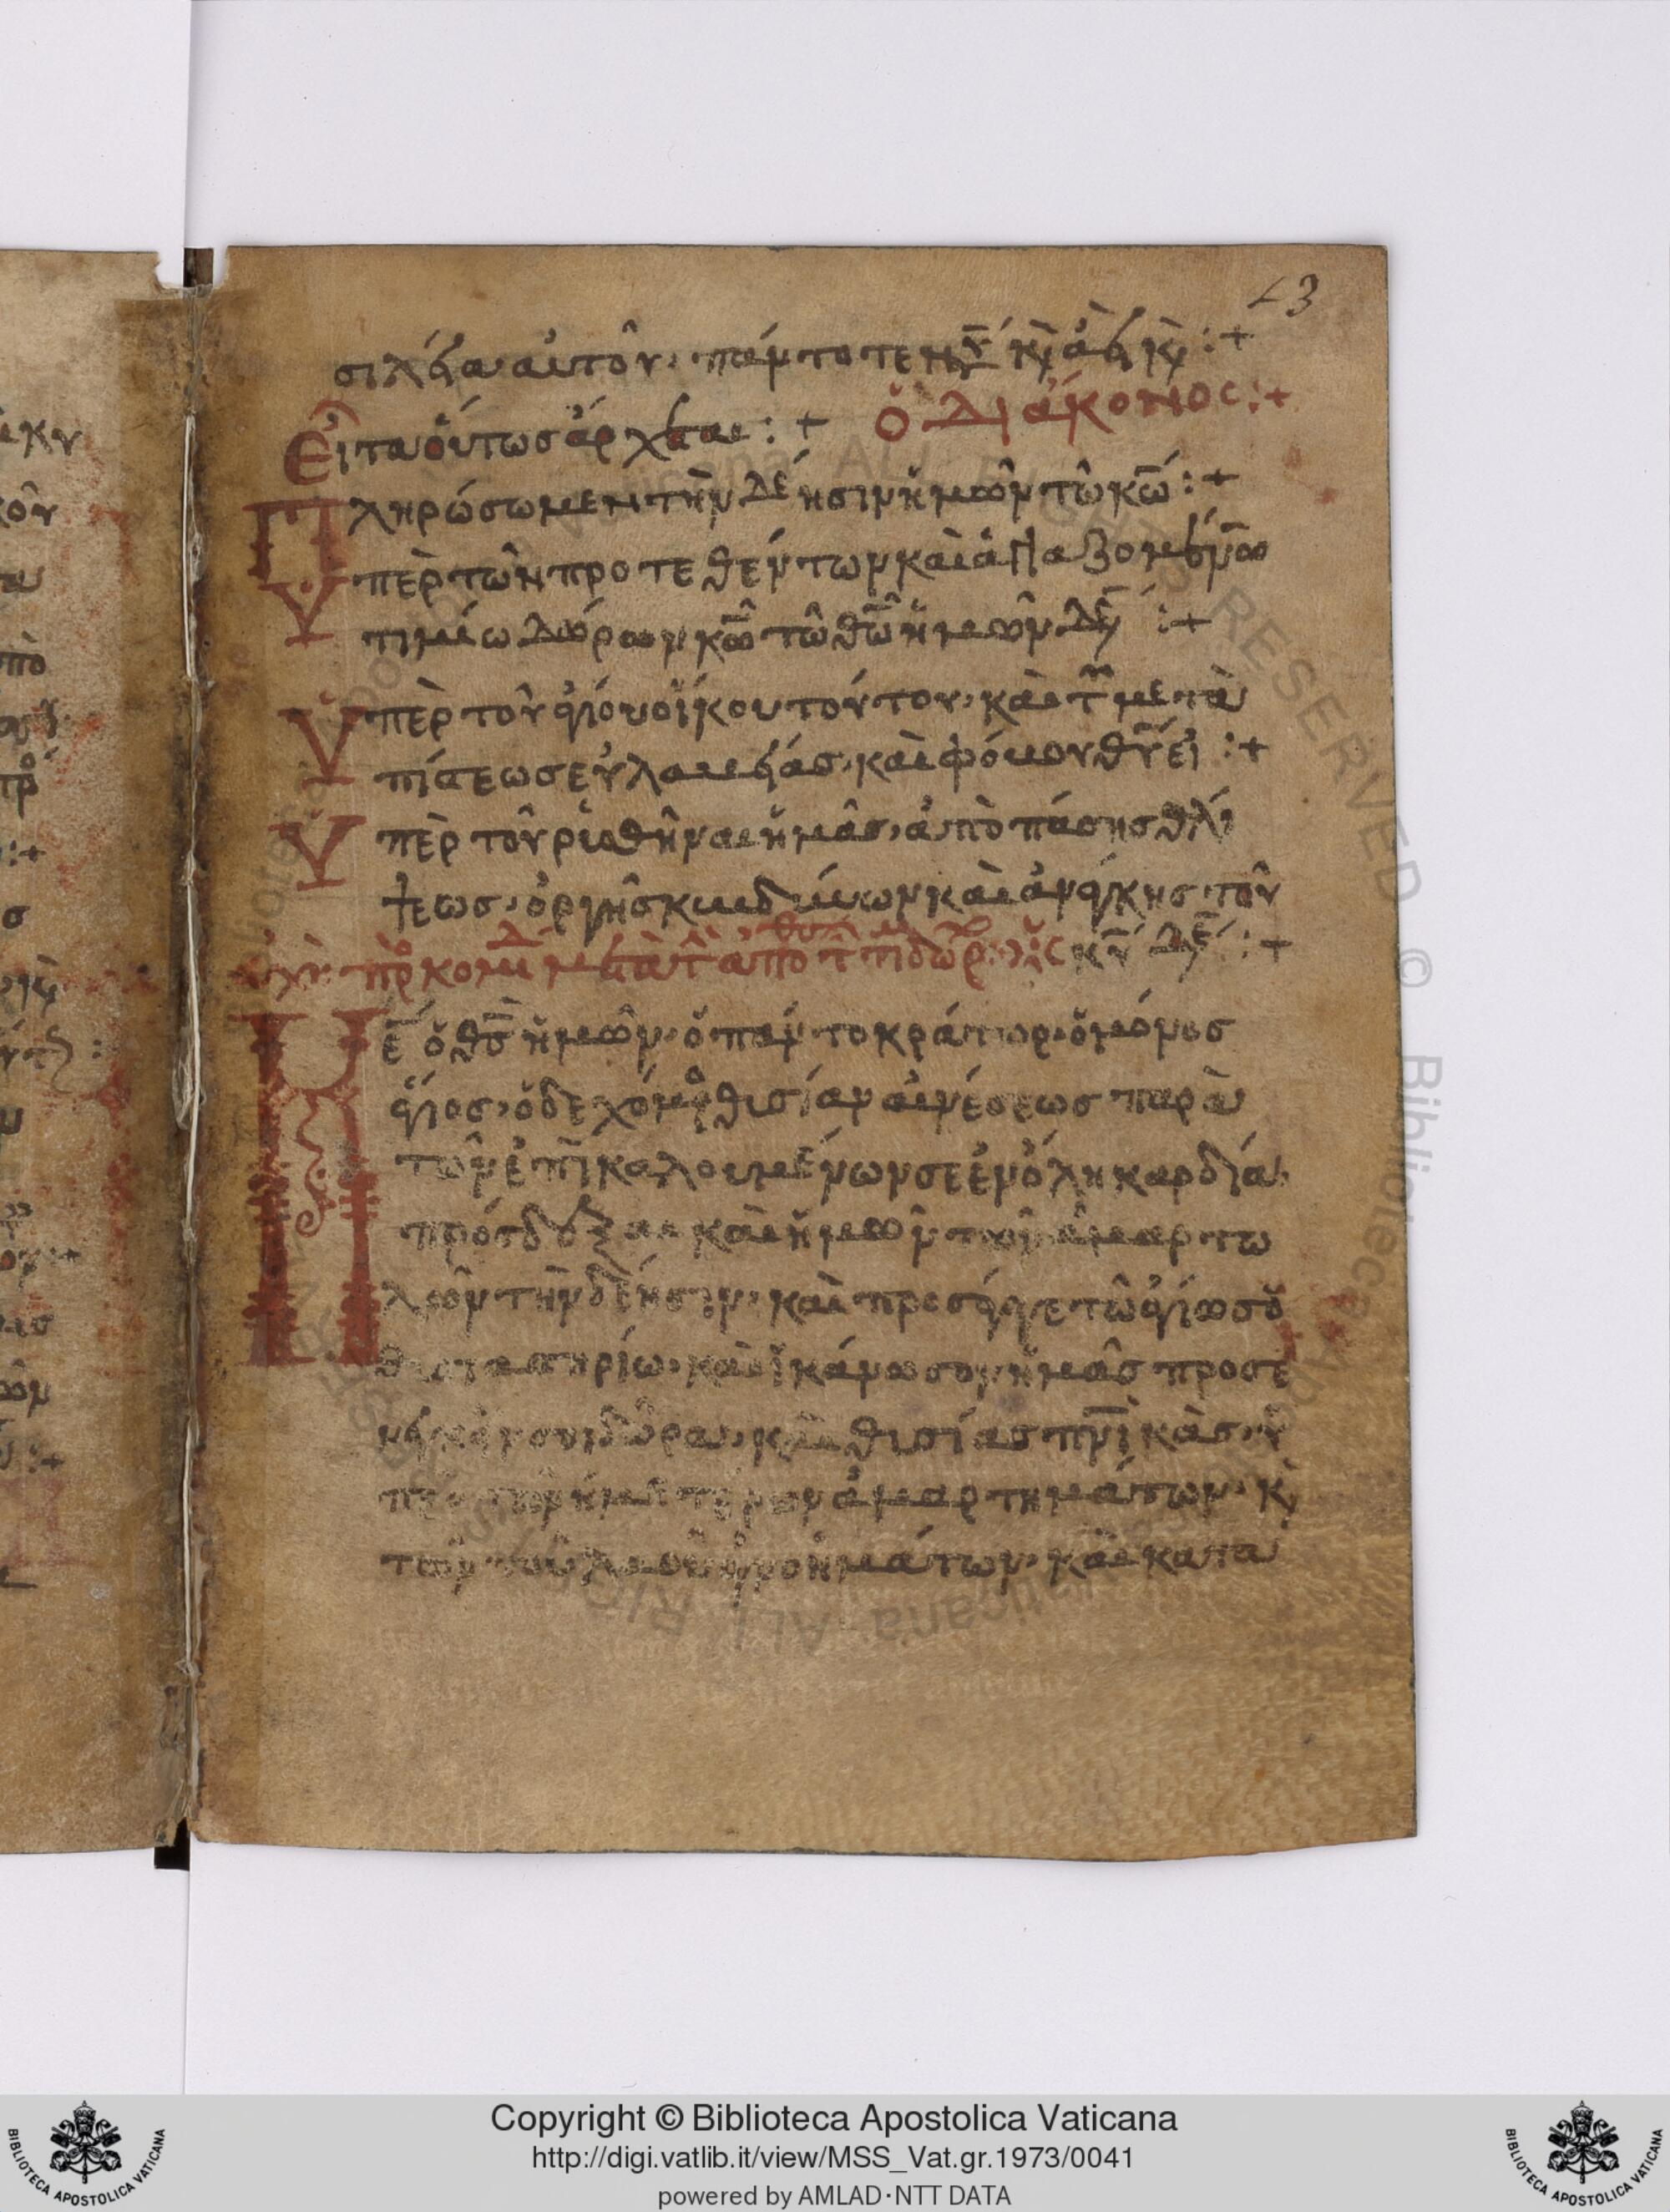 13
σιλεία αὐτοῦ· πάντοτε νῦ κ̀ ἀεὶ κ̀ :+
Εἶτα οὕτως ἄρχεται :+ ὁ Διάκονος :+
Πληρώσωμεν τὴν δέησιν ἡμῶν τῶ κω̄ :+
Ὑπὲρ τῶν προτεθέντων καὶ ἁγιαζομένω
τιμίω δώρων κω̄ τῶ θω̄ ἡμῶν δε :+
Ὑπὲρ τοῦ ἁγίου οἴκου τούτου· καὶ τ μετὰ
πίστεως εὐλαβείας· καὶ φόβου θῡ εἰ :+
Ὑπὲρ τοῦ ρυσθῆναι ἡμᾶς· ἀπὸ πάσης θλί
ψεως· ὀργῆς κινδύνων καὶ ἀνάγκης· τοῦ
κῡ δε :+
Κε̄ ὁ θς̄ ἡμῶν· ὁ παντοκράτωρ· ὁ μόνος
ἅγιος· ὁ δεχόμ θυσίαν αἰνέσεως παρὰ
τῶν ἐπικαλουμένων σε ἐν ὅλη καρδία·
πρόσδεξαι καὶ ἡμῶν τῶν ἁμαρτω
λῶν τὴν δέησιν· καὶ προσάγαγε τῶ ἁγίω σου
θυσιαστηρίω· καὶ ἱκάνωσον ἡμᾶς προσε
νεγκεῖν σοι δῶρα· καὶ θυσίας πνῑκὰς· ὑ
πὲρ τῶν ἡμετέρων ἁμαρτημάτων· κ̀
τῶν τοῦ λαοῦ ἀγνοημάτων· καὶ κατα
Copyright © Biblioteca Apostolica Vaticana
http://digi.vatlib.it/view/MSS_Vat.gr.1973/0041
powered by AMLAD·NTT DATA
BIBLIOTECA APOSTOLICA VATICANA
BIBLIOTECA APOSTOLICA VATICANA